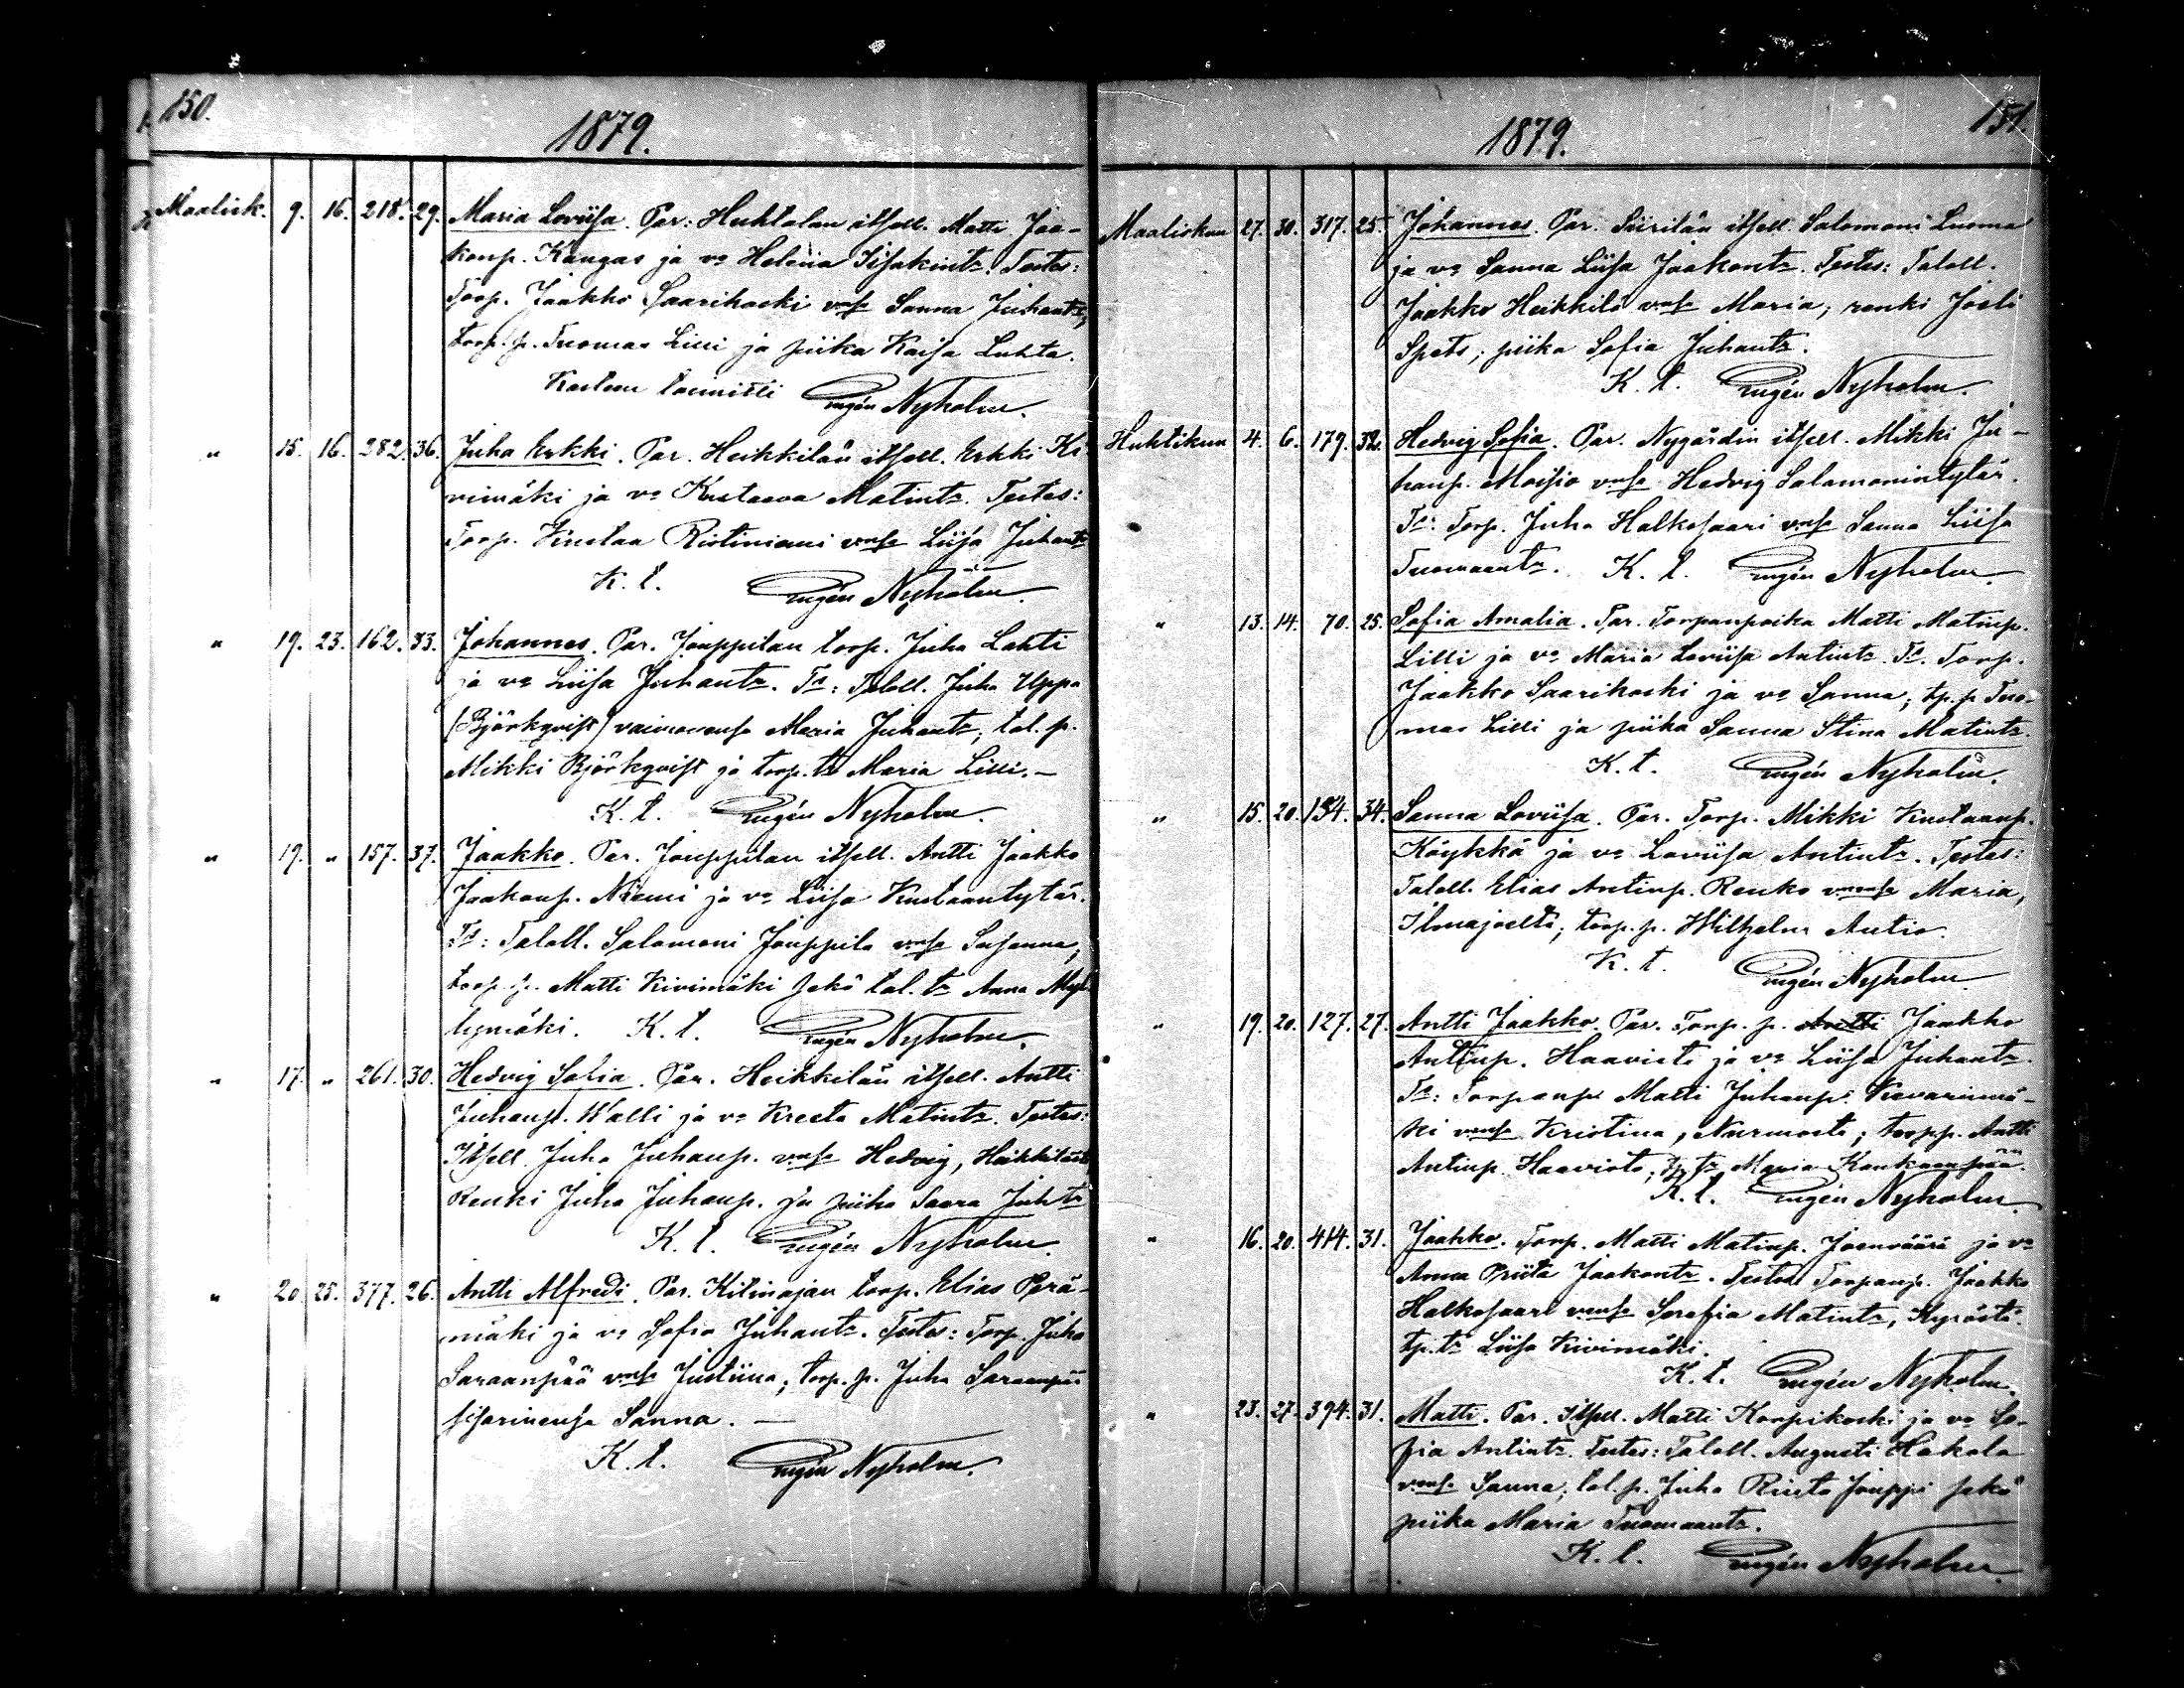 150.
1879.
Maalisk. 9. 16. 218. 29. Maria Loviisa. Par: Huhtalan itsell. Matti Jaa-
konp. Kangas ja vo Helena Iisakintr. Testes:
Torp. Jaakko Saarikoski vnsa Sanna Juhantr,
torp. p. Tuomas Lilli ja piika Kaisa Luhta.
Kasteen toimitti Eugén Nyholm.
" 15. 16. 282. 36. Juha Erkki. Par. Heikkilän itsell. Erkki Ki-
vimäki ja vo Kustaava Matintr. Testes:
Torp. Kustaa Ristiniemi vnsa Liisa Juhantr
K. t. Eugén Nyholm.
" 19. 23. 162. 33. Johannes. Par. Jouppilan torp. Juha Lahti
ja vo Liisa Juhantr. Ts: Taloll. Juha Uppa
(Björkqvist) vaimonensa Maria Juhantr, tal. p.
Mikki Björkqvist ja torp. tr Maria Lilli. —
K. t. Eugén Nyholm.
" 19. " 157. 37. Jaakko. Par. Jouppilan itsell. Antti Jaakko
Jaakonp. Niemi ja vo Liisa Kustaantytär.
Ts: Taloll. Salomoni Jouppila vnsa Susanna,
torp. p. Matti Kivimäki sekä tal. tr Anna Myl-
lymäki. K. t. Eugén Nyholm.
" 17. " 261. 30. Hedvig Sofia. Par. Heikkilän itsell. Antti
Juhanp. Walli ja vo Kreeta Matintr. Testes:
Itsell. Juha Juhanp. vnsa Hedvig, Heikkilästä
Renki Juha Juhanp. ja piika Saara Juhtr
K. t. Eugén Nyholm.
" 20 25. 377. 26. Antti Alfredi. Par. Kitinojan torp. Elias Perä-
mäki ja vo Sofia Juhantr. Testes: Torp. Juha
Saraanpää vnsa Justiina, torp. p. Juha Saraanpää
sisarinensa Sanna. —
K. t. Eugén Nyholm.
151.
1879.
Maaliskuu 27. 30. 317. 25. Johannes. Par. Siirilän itsell. Salomoni Luoma
ja vo Sanna Liisa Jaakontr. Testes: Taloll.
Jaakko Heikkilä vnsa Maria, renki Joeli
Spets, piika Sofia Juhantr.
K. t. Eugén Nyholm.
Huhtikuu 4. 6. 179. 32. Hedvig Sofia. Par. Nygårdin itsell. Mikki Ju-
hanp. Moisio vnsa Hedvig Salomonintytär.
Ts: Torp. Juha Halkosaari vnsa Sanna Liisa
Tuomaantr. K. t. Eugén Nyholm.
" 13. 14. 70. 25. Sofia Amalia. Par. Torpanpoika Matti Matinp.
Lilli ja vo Maria Loviisa Antintr. Ts. Torp.
Jaakko Saarikoski ja vo Sanna, tp. p Tuo-
mas Lilli ja piika Sanna Stina Matintr.
K. t. Eugén Nyholm.
" 15. 20. 134. 34. Sanna Loviisa. Par. Torp. Mikki Kustaanp.
Köykkä ja vo Loviisa Antintr. Testes:
Taloll. Elias Antinp. Renko vnensa Maria,
Ilmajoelta, torp. p. Wilhelm Antio.
K. t. Eugén Nyholm.
" 19. 20. 127. 27. Antti Jaakko. Par. Torp. p. Antti Jaakko
Antinp. Haavisto ja vo Liisa Juhantr.
Ts: Torpanp. Matti Juhanp.
ki vnsa Kristina, Nurmosta, torp p. Antti
Antinp. Haavisto, tp. tr Maria Kankaanpää.
K. t. Eugén Nyholm.
" 16. 20. 414. 31. Jaakko. Torp. Matti Matinp. Joenväärä ja vo
Anna Priita Jaakontr. Testes Torpanp. Jaakko
Halkosaari vnsa Serafia Matintr, Kyröstä
tp. tr Liisa Kivimäki.
K. t. Eugén Nyholm.
" 23. 27. 394. 31. Matti. Par. Itsell. Matti Korpikoski ja vo So-
fia Antintr. Testes: Taloll. Augusti Hakola
vnsa Sanna, tal. p. Juha Rinta Jouppi sekä
piika Maria Tuomaantr.
K. t. Eugén Nyholm.